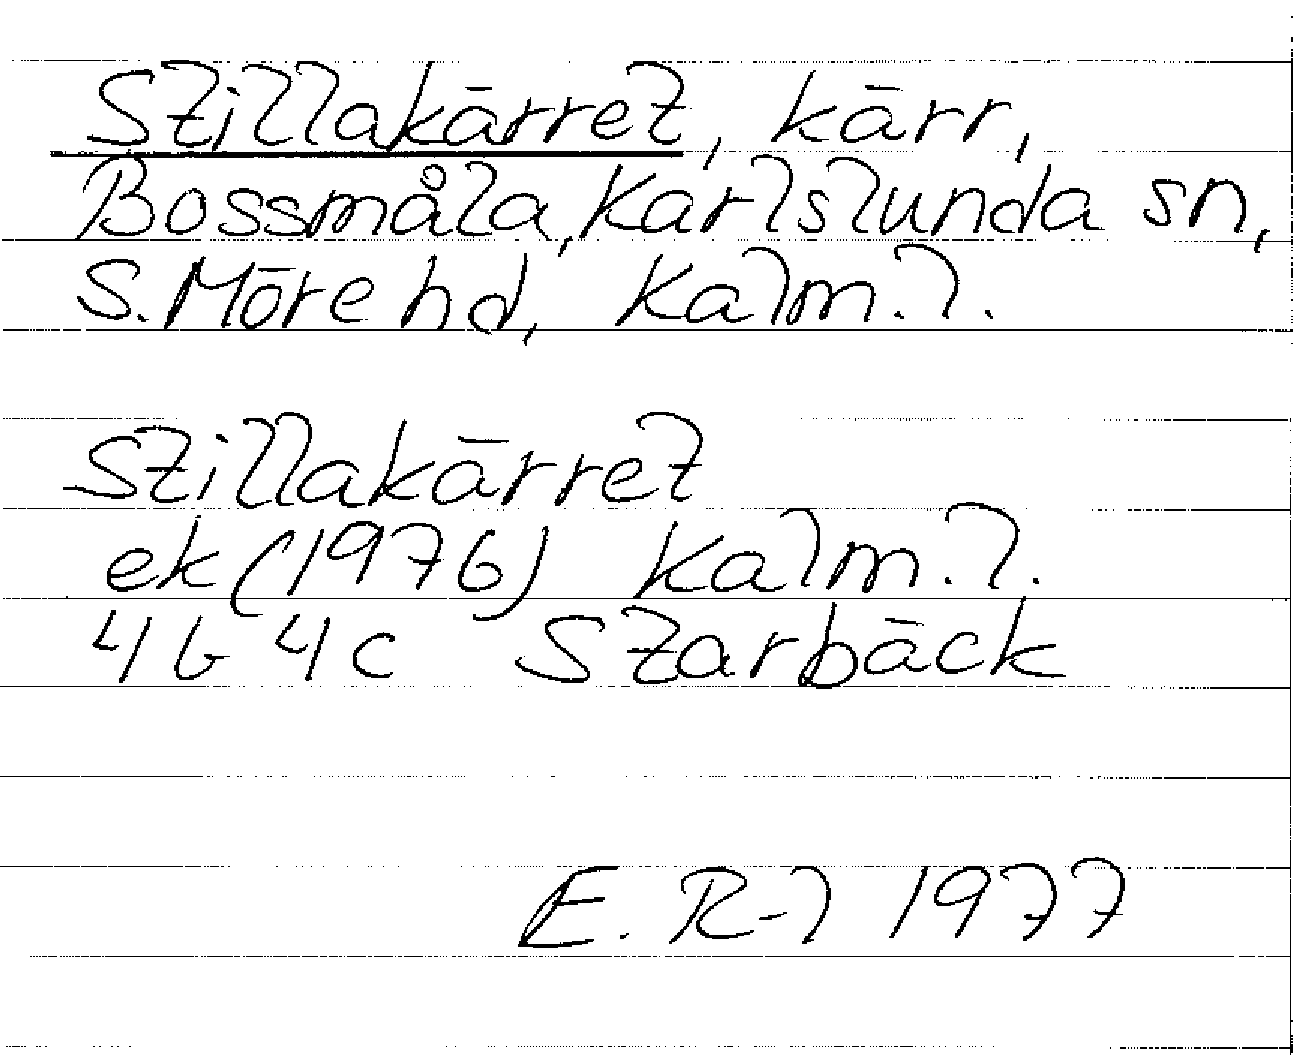 Stillakärret, kärr,
Bossmåla, Karlslunda sn,
S. Möre hd, Kalm. l.
Stillakärret
ek (1976) Kalm. l.
4G 4c Starbäck
E. R-l 1977